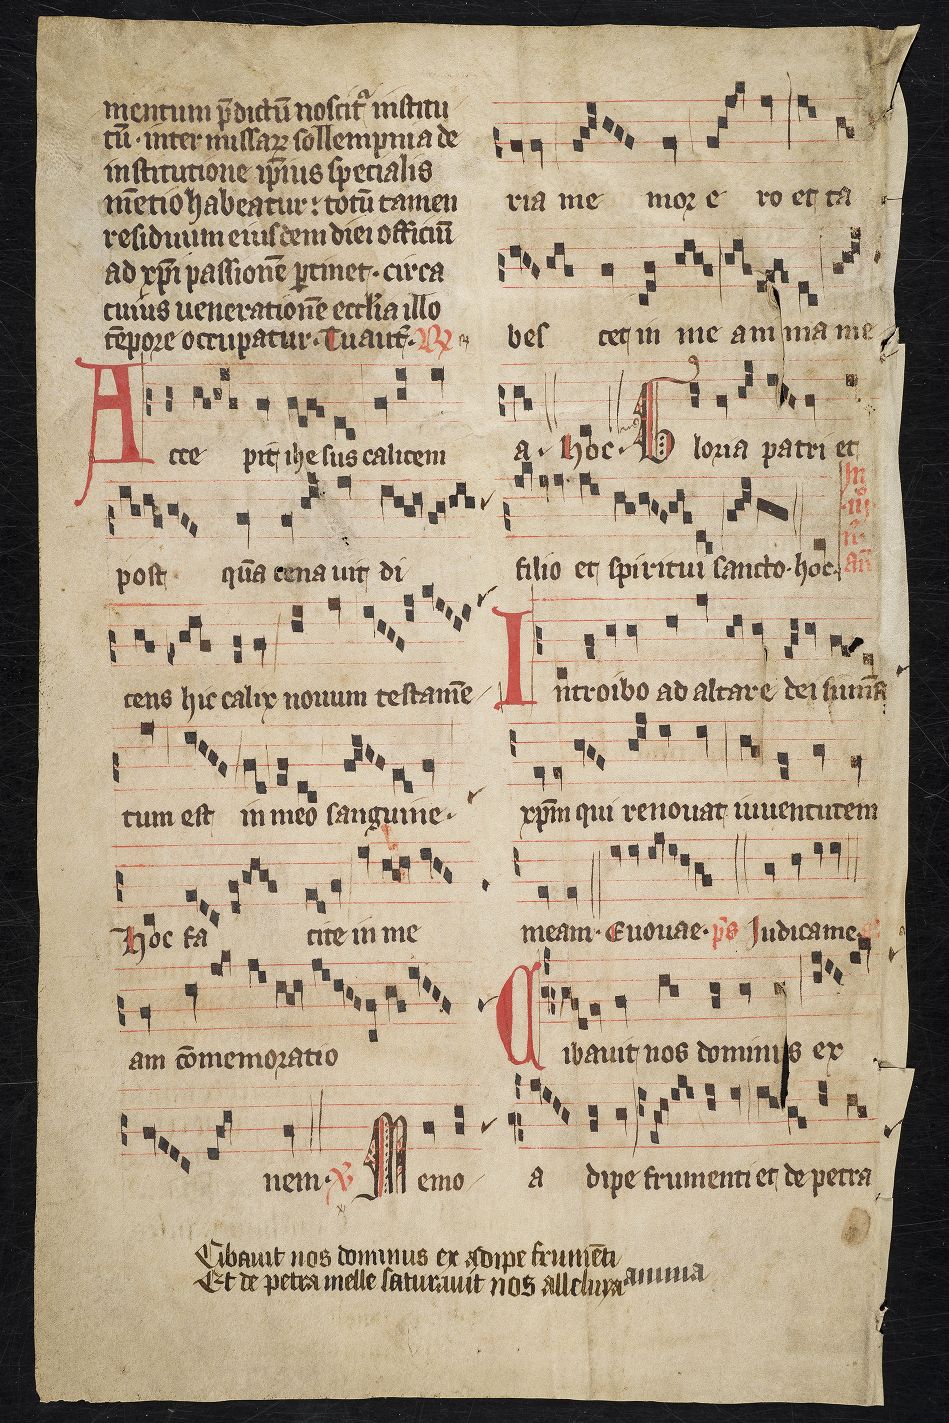 mentum p̄dictū noscit᷑ institu
tū · inter missaꝝ sollempnia de
institutione ip̄ius specialis
m̄etio habeatur : totū tamen
residuum eiusdem diei officiū
ad xp̄i passionē ꝑtinet · circa
cuius uenerationē eccłia illo
tēpore occupatur · Tu aut̄ · ℟
Acce pit ihesus calicem
post quā cenauit di
cens hic calix nouum testamē
tum est in meo sanguine ·
Hoc fa cite in me
am cōmemoratio
nem · ℣ Memo
ria me moꝛ e ro et ta
bes cet in me anima me
a · hoc · Gloria patri et
filio et spiritui sancto · hoc ·
Jn
·iii·
n̄·
an̄
Introibo ad altare dei sum̄
xp̄m qui renouat iuuentutem
meam · Euouae · p̄s Judica me ·
Cibauit nos dominus ex
a dipe frumenti et de petra
Cibauit nos dominus ex adipe frumēti
Et de petra melle saturauit nos alleluya